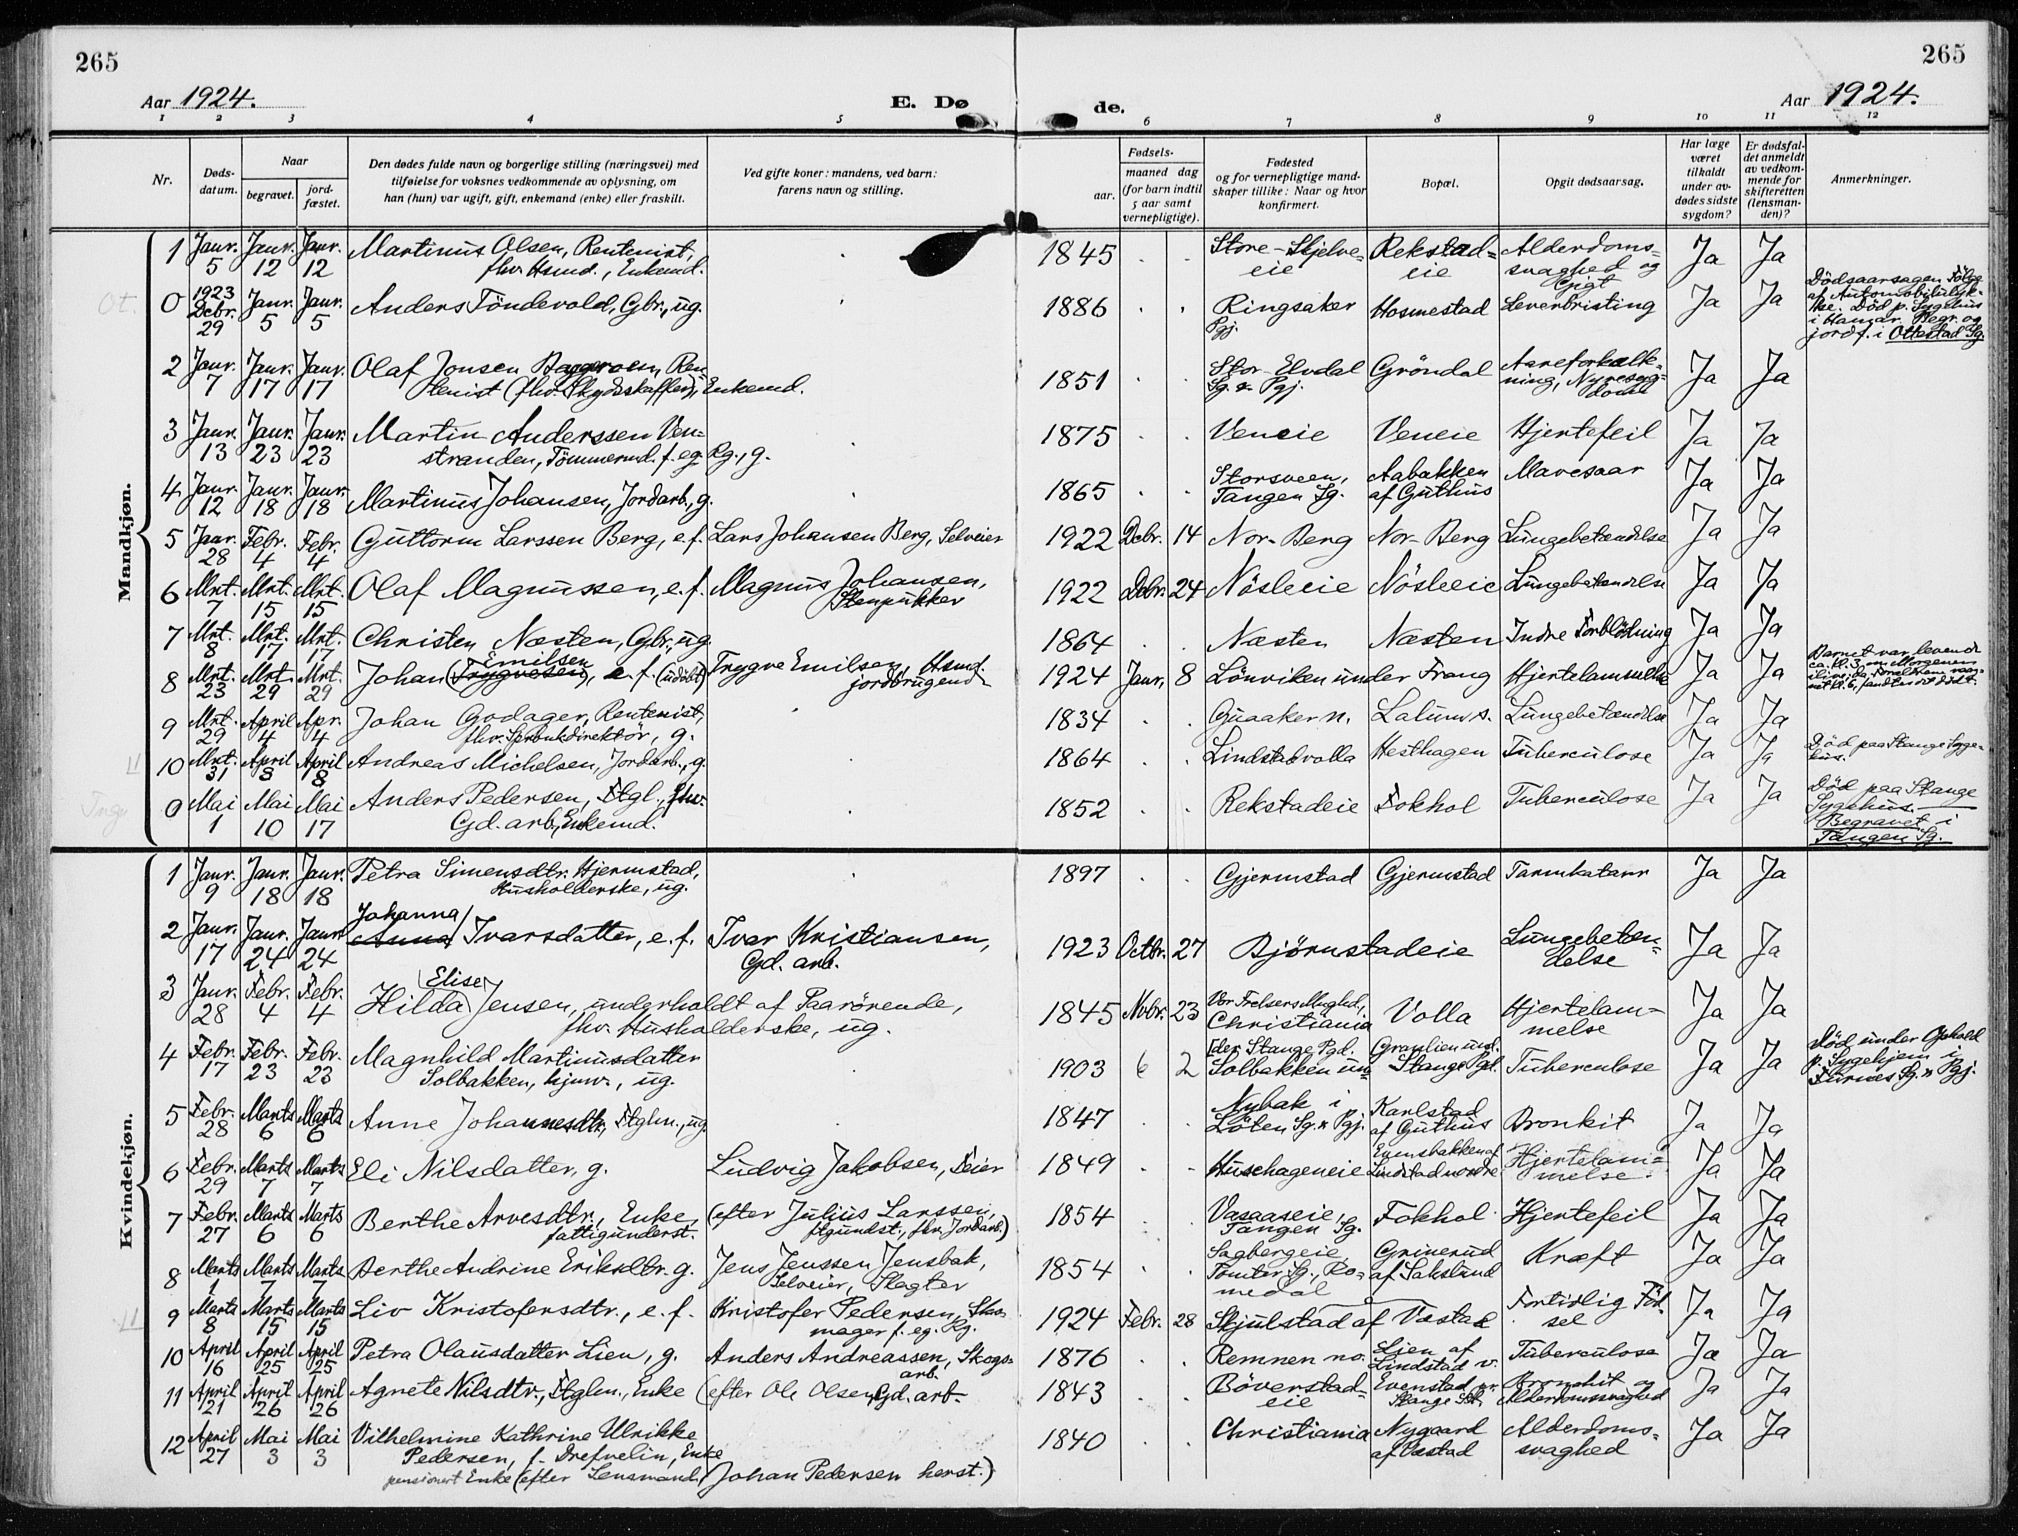 265
265
Aar 1924.
E. Dø
de.
Aar 1924.
1 2 3 4 5 6 7 8 9 10 11 12
Nr.
Døds-
datum.
Naar
begravet.
jord-
fæstet.
Den dødes fulde navn og borgerlige stilling (næringsvei) med
tilføielse for voksnes vedkommende av oplysning, om
han (hun) var ugift, gift, enkemand (enke) eller fraskilt.
Ved gifte koner: mandens, ved barn:
farens navn og stilling.
Fødsels-
aar.
maaned dag
(for barn indtil
5 aar samt
vernepligtige).
Fødested
og for vernepligtige mand-
skaper tillike: Naar og hvor
konfirmert.
Bopæl.
Opgit dødsaarsag.
Har læge
været
tilkaldt
under av-
dødes sidste
sygdom?
Er dødsfal-
det anmeldt
av vedkom-
mende for
skifteretten
(lensman-
den)?
Anmerkninger.
Mandkjøn.
1 Janr. 5 Janr. 12 Janr. 12 Martinus Olsen, Rentenist,
fhv. Hsmd., Enkemd.
1845 Store-Skjelve-
eie Rekstad-
eie Alderdoms-
svaghed og
Gigt Ja Ja
Ot. 0 1923 Debr. 29 Janr. 5 Janr. 5 Anders Töndevold, Gbr., ug.
1886 Ringsaker
Pgj. Hosmestad Leverbristing Ja Ja Dödsaarsagen Følge
af Automobilulyk-
ke. Död p. Sygehus
i Hamar. Begr. og
jordf. i Ottestad Sg.
2 Janr. 7 Janr. 17 Janr. 17 Olaf Jonsen Haggroen, Ren-
tenist (fhv. Skydsskaffer), Enkemd.
1851 Stor-Elvdal
Sg. & Pgj. Gröndal Aareforkalk-
ning, Nyresyg-
dom Ja Ja
3 Janr. 13 Janr. 23 Janr. 23 Martin Anderssen Ven-
stranden, Tömmermd. f. eg. Rg., g.
1875 Veneie Veneie Hjertefeil Ja Ja
4 Janr. 12 Janr. 18 Janr. 18 Martinus Johansen, Jordarb., g.
1865 Storsveen,
Tangen Sg. Aabakken
af Guthus Mavesaar Ja Ja
5 Janr. 28 Febr. 4 Febr. 4 Guttorm Larssen Berg, e.f. Lars Johansen Berg, Selveier
1922 Debr. 14 Nor-Berg Nor-Berg Lungebetændelse Ja Ja
6 Mrt. 7 Mrt. 15 Mrt. 15 Olaf Magnussen, e.f. Magnus Johansen,
Stenpukker
1922 Debr. 24 Nösleeie Nösleeie Lungebetændelse Ja Ja
7 Mrt. 8 Mrt. 17 Mrt. 17 Christen Næsten, Gbr., ug.
1864 Næsten Næsten Indre Forblödning Ja Ja
8 Mrt. 23 Mrt. 29 Mrt. 29 Johan (Trygvesen) Emilsen, e.f. (udöbt) Trygve Emilsen, Hsmd.
jordbrugend
1924 Janr. 8 Lönviken under Frang Hjertelammelse Ja Ja Barnet var levende
ca. kl. 3 om Morgenen
da Forældrene vaag-
net kl. 6, fandtes det dödt.
9 Mrt. 29 April 4 Apr. 4 Johan Godager, Rentenist,
fhv. Sprbnkdirektör, g.
1834 Guaaker n. Lalum s. Lungebetændelse Ja Ja
10 Mrt. 31 April 8 April 8 Andreas Michelsen, Jordarb., g.
1864 Lindstadvolla Hesthagen Tuberculose Ja Ja Död paa Stange Syge-
hus.
Tng. 0 Mai 1 Mai 10 Mai 17 Anders Pedersen, Ftgl., fhv.
Gd. arb., Enkemd.
1852 Rekstadeie Fokhol Tuberculose Ja Ja Död paa Stange
Sygehus.
Begravet i
Tangen Sg.
Kvindekjøn.
1 Janr. 9 Janr. 18 Janr. 18 Petra Simensdtr. Hjermstad,
Husholderske, ug.
1897 Gjermstad Gjermstad Tarmkatarr Ja Ja
2 Janr. 17 Janr. 24 Janr. 24 Johanna
Anna Ivarsdatter, e.f. Ivar Kristiansen,
Gd. arb.
1923 Octbr. 27 Bjørnstadeie Lungebetæn-
delse Ja Ja
3 Janr. 28 Febr. 4 Febr. 4 Elise
Hilda Jensen, underholdt af Paarörende,
fhv. Husholderske, ug.
1845 Novbr. 23 Vor Frelsers Mnghd.,
Christiania Volla Hjertelam-
melse Ja Ja
4 Febr. 17 Febr. 23 Febr. 23 Magnhild Martinusdatter
Solbakken, hjmv., ug.
1903 6 2 [der Stange Pgd.
Solbakken un- Granlien und.
Stange Pgd. Tuberculose Ja Ja Död under Ophold
p. Sygehjem i
Furnes Sg. & Pgj.
5 Febr. 28 Marts 6 Marts 6 Anne Johannesdtr., Ftglm., ug.
1847 Nybak i
Löten Sg. & Pgj. Karlstad
af Guthus Bronkit Ja Ja
6 Febr. 29 Marts 7 Marts 7 Eli Nilsdatter, g. Ludvig Jakobsen, Feier
1849 Huschageneie Evensbakken af
Lindstad nordre Hjertelam-
melse. Ja Ja
7 Febr. 27 Marts 6 Marts 6 Berthe Arvesdtr., Enke,
fattigunderst. (efter Julius Larssen,
ftgundst., fhv. Jordarb.)
1854 Vasaaseie,
Tangen Sg. Fokhol Hjertefeil Ja Ja
8 Marts 1 Marts 7 Marts 7 Berthe Andrine Eriksdtr. g. Jens Jenssen Jensbak,
Selveier, Slagter
1854 Sagbergeie,
Tomter Sg., Ro-
medal Grinerud
af Sakslund Kræft Ja Ja
9 Marts 8 Marts 15 Marts 15 Liv Kristofersdtr., e.f. Kristofer Pedersen, Sko-
mager f. eg. Rg.
1924 Febr. 28 Skjulstad af Vestad Fortidlig Föd-
sel Ja Ja
10 April 16 April 25 April 25 Petra Olausdatter Lien, g. Anders Andreassen, Skogs-
arb.
1876 Remmen no. Lien af
Lindstad v. Tuberculose Ja Ja
11 April 21 April 26 April 26 Agnete Nilsdtr., Ftglm., Enke (efter Ole Olsen, Gd. arb.
1843 Böverstad-
eie Evenstad pr.
Stange St. Bronchit og
Alderdomssvaghed Ja Ja
12 April 27 Mai 3 Mai 3 Vilhelmine Kathrine Ulrikke
Pedersen, f. Drefvelin, Enke
pensionert Enke (efter Lensmand Johan Pedersen herst.)
1840 Christiania Nygaard
af Vestad Alderdoms-
svaghed Ja Ja